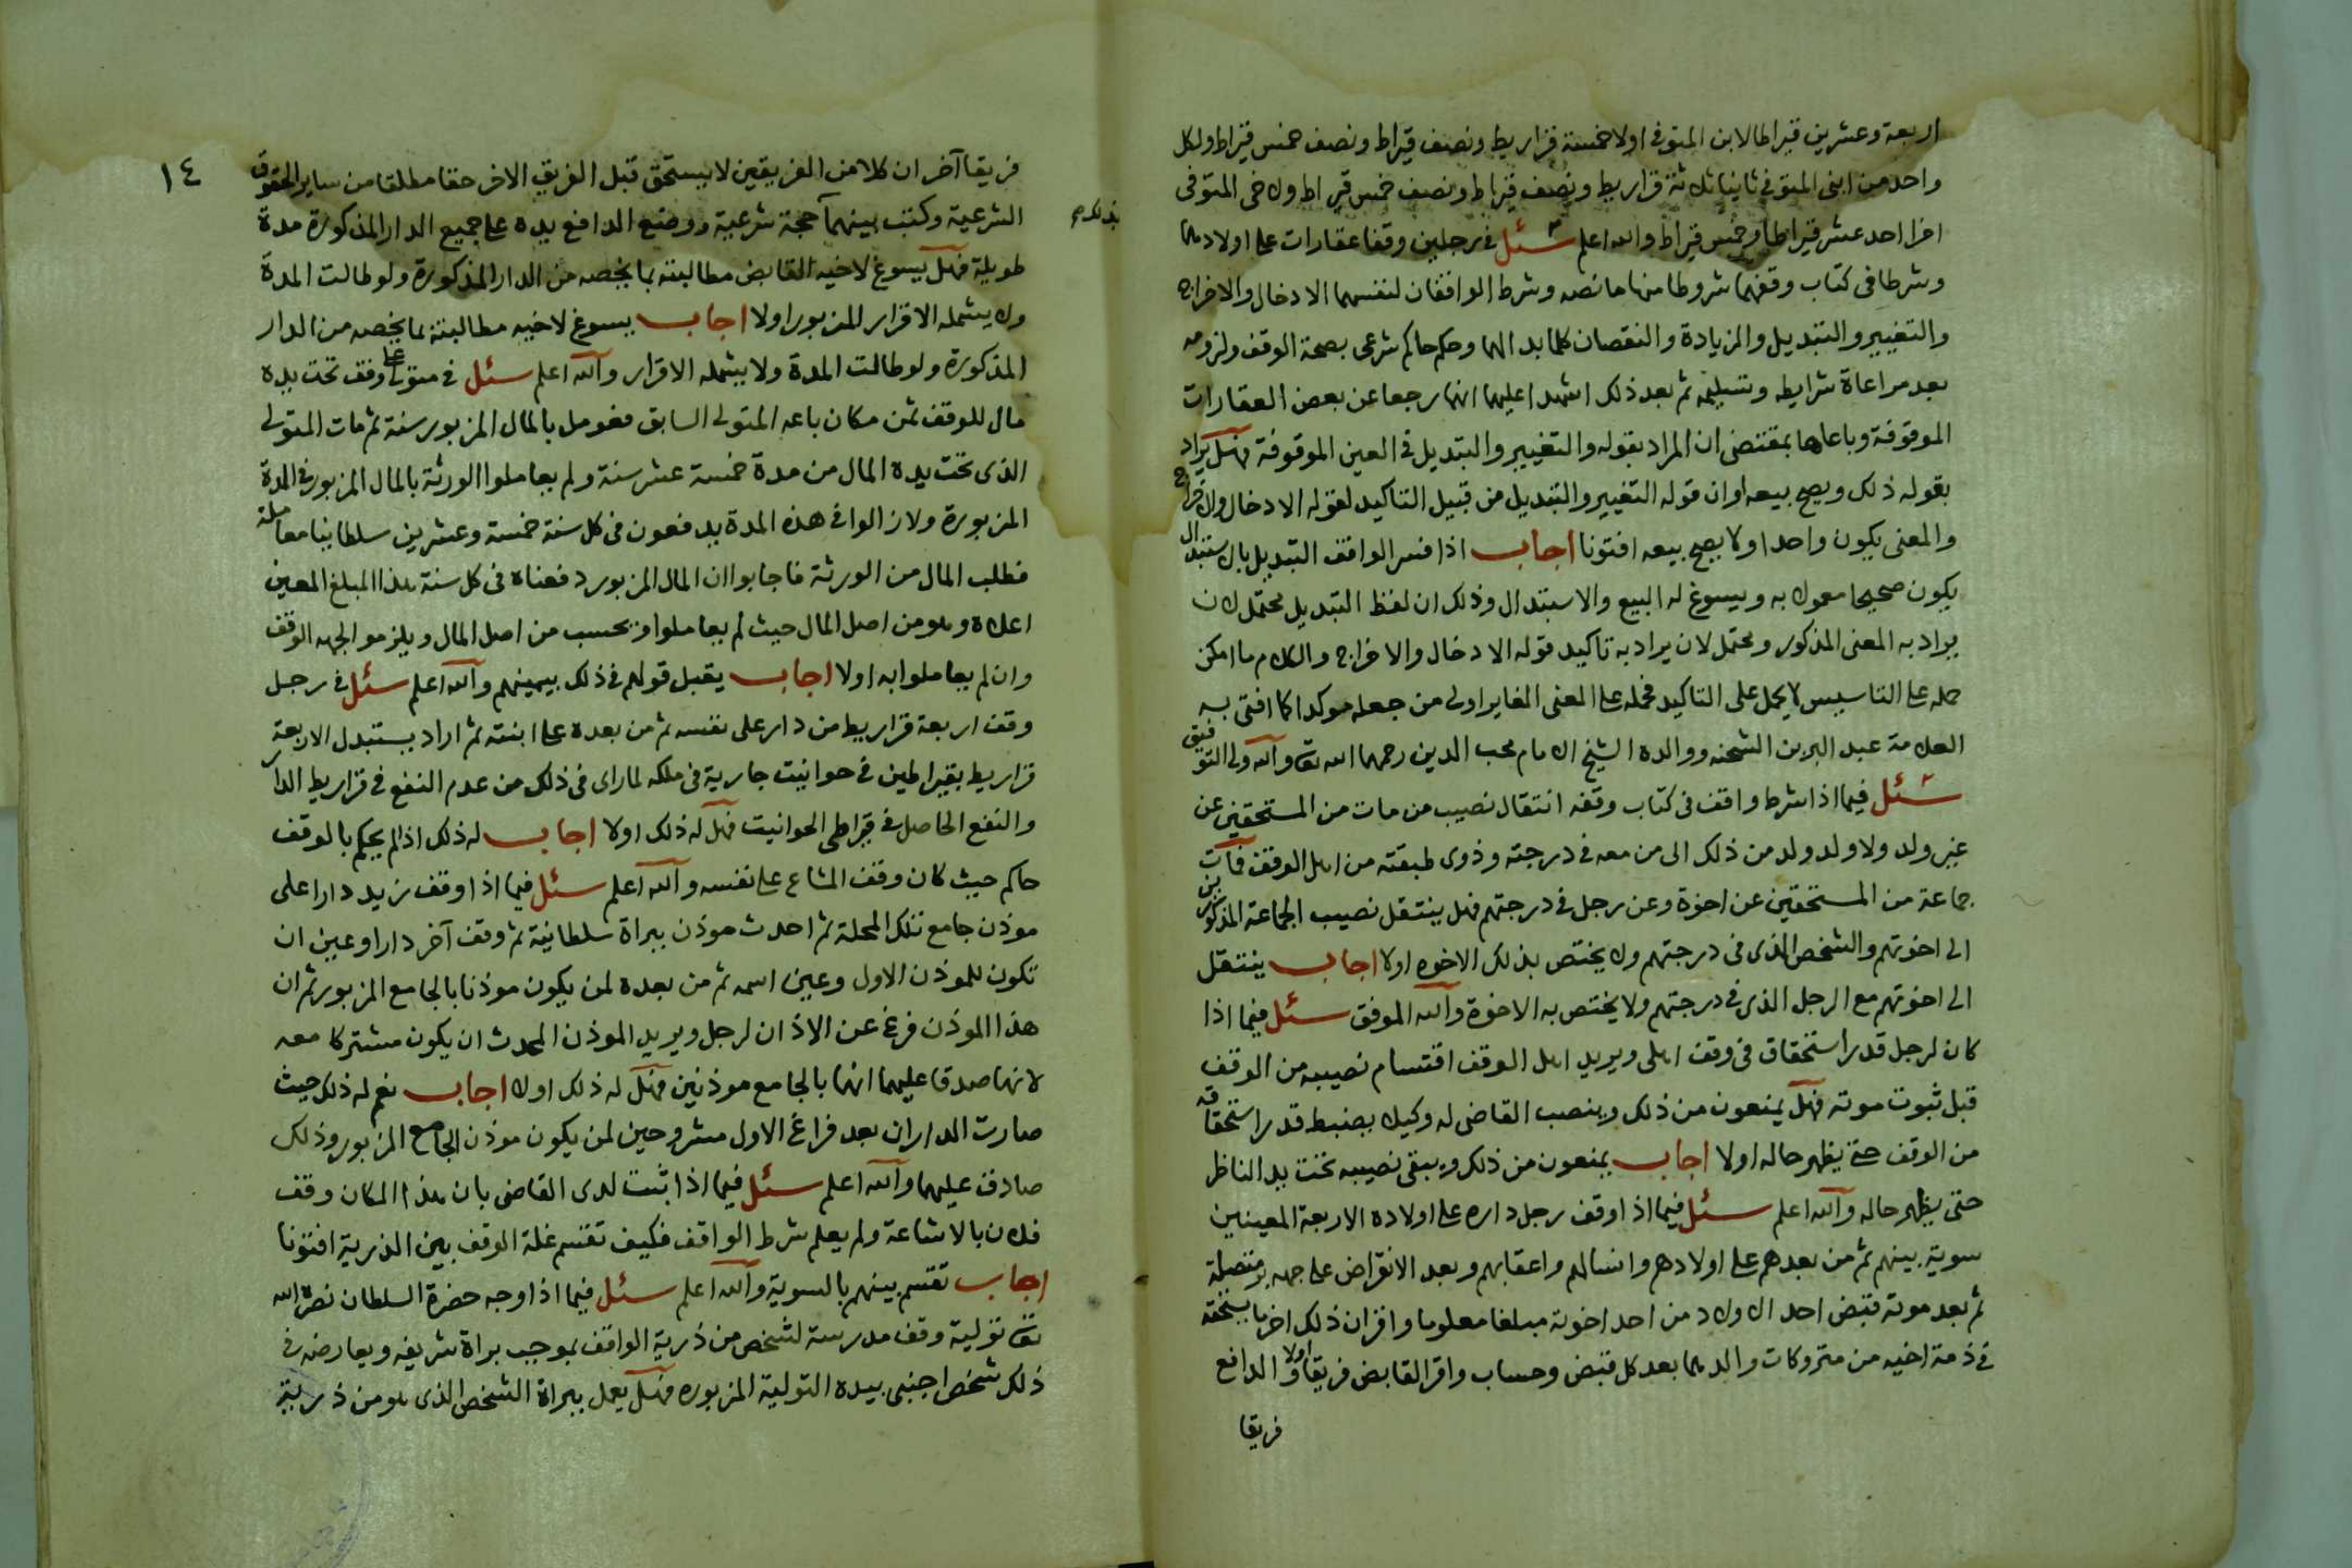 اربعة وعشرين قيراطا لابن المتوفى اولا خمسة قراريط ونصف قيراط ونصف خمس قيراط ولكل
واحد من ابنى المتوفى ثانيا ثلاثة قراريط ونصف قيراط ونصف خمس قيراط ولاخى المتوفى
اخرا احد عشر قيراطا وخمس قيراط والله اعلم سئل فى رجلين وقفا عقارات على اولادهما
وشرطا فى كتاب وقفهما شروطا منها ما نصه وشرط الواقفان لنفسهما الادخال والاخراج
والتغيير والتبديل والزيادة والنقصان كلما بدا لهما وحكم حاكم شرعى بصحة الوقف ولزومه
بعد مراعاة شرايطه وتسليمه ثم بعد ذلك اشهدا عليهما انهما رجعا عن بعض العقارات
الموقوفة وباعاها بمقتضى ان المراد بقوله والتغيير والتبديل فى العين الموقوفة فهل يراد
بقوله ذلك ويصح بيعه او ان قوله التغيير والتبديل من قبيل التاكيد لقوله الادخال والاخراج
والمعنى يكون واحدا ولا يصح بيعه افتونا اجاب اذا فسر الواقف التبديل بالاستبدال
يكون صحيحا معمولا به ويسوغ له البيع والاستبدال وذلك ان لفظ التبديل محتمل لان
يراد به المعنى المذكور ومحتمل لان يراد به تاكيد قوله الادخال والاخراج والكلام ما امكن
حمله على التاسيس لا يحمل على التاكيد فحمله على المعنى المغاير اولى من جعله موكدا كما افتى به
العلامة عبد البر بن الشحنه ووالده الشيخ الامام محب الدين رحمهما الله تعالى والله ولى التوفيق
سئل فيما اذا شرط واقف فى كتاب وقفه انتقال نصيب من مات من المستحقين عن
غير ولد ولا ولد ولد من ذلك الى من معه فى درجته وذوى طبقته من اهل الوقف فمات
جماعة من المستحقين عن اخوة وعن رجل فى درجتهم فهل ينتقل نصيب الجماعة المذكورين
الى اخوتهم والشخص الذى فى درجتهم ولا يختص بذلك الاخوه اولا اجاب ينتقل
الى اخوتهم مع الرجل الذى فى درجتهم ولا يختص به الاخوة والله الموفق سئل فيما اذا
كان لرجل قدر استحقاق فى وقف اهلى ويريد اهل الوقف اقتسام نصيبه من الوقف
قبل ثبوت موته فهل يمنعون من ذلك وينصب القاضى له وكيلا يضبط قدر استحقاقه
من الوقف حتى يظهر حاله اولا اجاب يمنعون من ذلك ويبقى نصيبه تحت يد الناظر
حتى يظهر حاله والله اعلم سئل فيما اذا وقف رجل داره على اولاده الاربعة المعينين
سوية بينهم ثم من بعدهم على اولادهم وانسالهم واعقابهم وبعد الانقراض على جهة بر متصلة
ثم بعد موته قبض احد الاولاد من احد اخوته مبلغا معلوما واقر ان ذلك اخر ما يستحقه
فى ذمة اخيه من متروكات والدهما بعد كل قبض وحساب واقر القابض فريقا اولا والدافع
فريقا
بذلك صح
١٤
فريقا آخر ان كلا من الفريقين لا يستحق قبل الفريق الاخر حقا مطلقا من ساير الحقوق
الشرعية وكتب بينهما حجة شرعية ووضع الدافع يده على جميع الدار المذكورة مدة
طويلة فهل يسوغ لاخيه القابض مطالبته بما يخصه من الدار المذكورة ولو طالت المدة
ولا يشمله الاقرار المزبور اولا اجاب يسوغ لاخيه مطالبته بما يخصه من الدار
المذكورة ولو طالت المدة ولا يشمله الاقرار والله اعلم سئل فى متولى على وقف تحت يده
مال للوقف ثمن مكان باعه المتولى السابق فعومل بالمال المزبور سنة ثم مات المتولى
الذى تحت يده المال من مدة خمسة عشر سنة ولم يعاملوا الورثة بالمال المزبور فى المدة
المزبورة ولا زالوا فى هذه المدة يدفعون فى كل سنة خمسة وعشرين سلطانيا معاملة
فطلب المال من الورثة فاجابوا ان المال المزبور دفعناه فى كل سنة هذا المبلغ المعين
اعلاه وهو من اصل المال حيث لم يعاملوا فهل يحسب من اصل المال ويلزموا لجهة الوقف
وان لم يعاملوا به اولا اجاب يقبل قولهم فى ذلك بيمينهم والله اعلم سئل فى رجل
وقف اربعة قراريط من دار على نفسه ثم من بعده على ابنته ثم اراد يستبدل الاربعة
قراريط بقيراطين فى حوانيت جارية فى ملكه لما راى فى ذلك من عدم النفع فى قراريط الدار
والنفع الحاصل فى قيراطى الحوانيت فهل له ذلك اولا اجاب له ذلك اذا لم يحكم بالوقف
حاكم حيث كان وقف المشاع على نفسه والله اعلم سئل فيما اذا وقف زيد دارا على
موذن جامع تلك المحلة ثم احدث موذن ببراة سلطانية ثم وقف آخر دارا وعين ان
تكون للموذن الاول وعين اسمه ثم من بعده لمن يكون موذنا بالجامع المزبور ثم ان
هذا الموذن فرغ عن الاذان لرجل ويريد الموذن المحدث ان يكون مشتركا معه
لانهما صدقا عليهما انهما بالجامع موذنين فهل له ذلك اولا اجاب نعم له ذلك حيث
صارت الداران بعد فراغ الاول مشروحين لمن يكون موذن الجامع المزبور وذلك
صادق عليهما والله اعلم سئل فيما اذا ثبت لدى القاضى بان هذا المكان وقف
فلان بالاشاعة ولم يعلم شرط الواقف فكيف تقسم غلة الوقف بين الذرية افتونا
اجاب تقسم بينهم بالسوية والله اعلم سئل فيما اذا وجه حضرة السلطان نصره الله
تعالى تولية وقف مدرسة لشخص من ذرية الواقف بموجب براة شريفه ويعارضه فى
ذلك شخص اجنبى بيده التولية المزبوره فهل يعمل ببراة الشخص الذى هو من ذرية